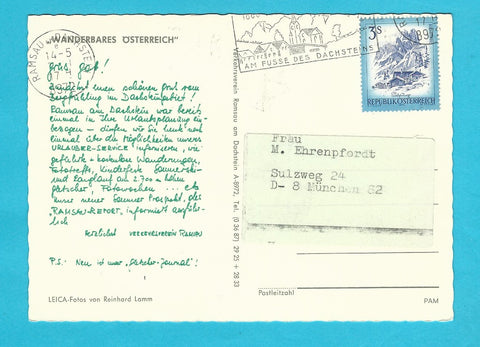 „WANDERBARES ÖSTERREICH"
RAMSAU
14-5
AM FUSSE DES DACHSTEINS
8972
3s
REPUBLIK ÖSTERREICH
grüß gott!
zunächst einen schönen gruß vom
Bergfrühling im Dachsteingebiet!
Ramsau am Dachstein war bereits
einmal in Ihre Urlaubsplanung ein-
bezogen – dürfen wir Sie heute noch
einmal über die Möglichkeiten unseres
URLAUBER-SERVICE informieren, wie
geführte + kostenlose Wanderungen,
Fototreffs, Kinderfeste, Sommerski-
und Langlauf am 2.700 m hohen
gletscher, Fotowochen ... etc
unser neuer Sommer Prospekt, der
„RAMSAU-REPORT" informiert ausführ-
lich
Herzlichst VERKEHRSVEREIN RAMSAU
P.S. Neu ist unser „Gletscher-Journal"!
LEICA-Fotos von Reinhard Lamm
Verkehrsverein Ramsau am Dachstein A-8972, Tel. (0 36 87) 29 25 + 28 33
Frau
M. Ehrenpfordt
Sulzweg 24
D- 8 München 82
Postleitzahl
PAM